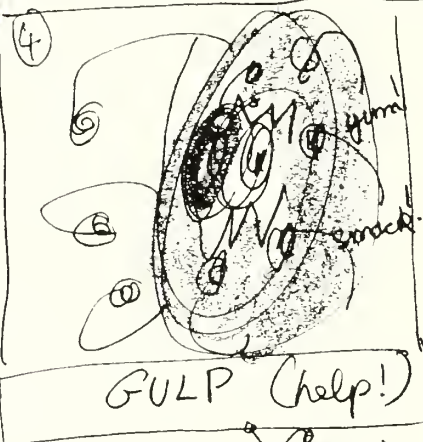 4
yum!
smack!
GULP (help!)